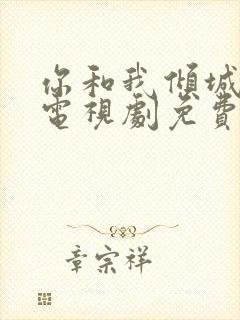 你和我傾城
電視劇免費
章宗祥